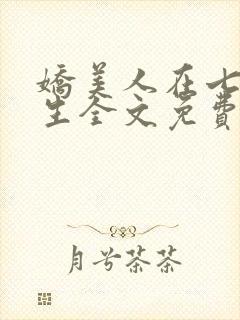 嬌美人在七
生全文免費
月兮茶茶